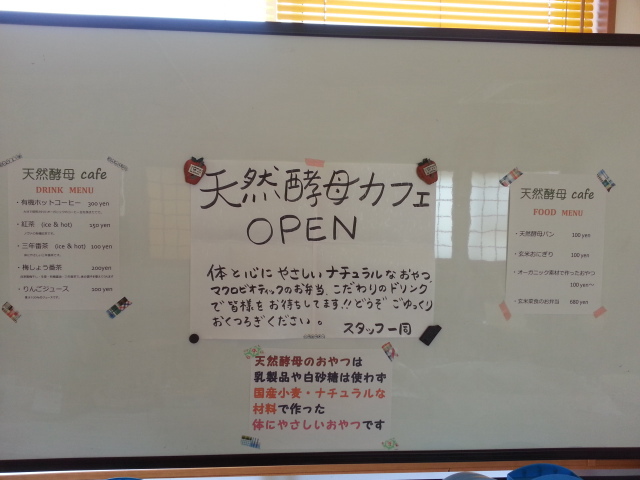 天然酵母 cafe
DRINK MENU
・有機ホットコーヒー 300 yen
・紅茶 (ice & hot) 250 yen
・三年番茶 (ice & hot) 100 yen
・梅しょう番茶 200yen
・りんごジュース 200 yen
天然酵母カフェ
OPEN
体と心にやさしいナチュラルなおやつ、
マクロビオティックのお弁当、こだわりのドリンク
で皆様をお待ちしてます!!どうぞごゆっくり
おくつろぎください。
スタッフ一同
天然酵母のおやつは
乳製品や白砂糖は使わず
国産小麦・ナチュラルな
材料で作った
体にやさしいおやつです
天然酵母 cafe
FOOD MENU
・天然酵母パン 100 yen
・玄米おにぎり 100 yen
・オーガニック素材で作ったおやつ
100 yen～
・玄米菜食のお弁当 680 yen